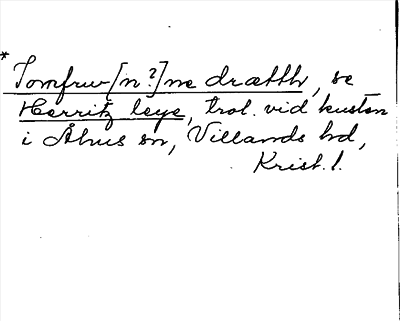 *
Jomfrw[n?]ne drætth, se
Herritz leye, trol. vid kusten
i Åhus sn, Villands hd,
Krist. l.